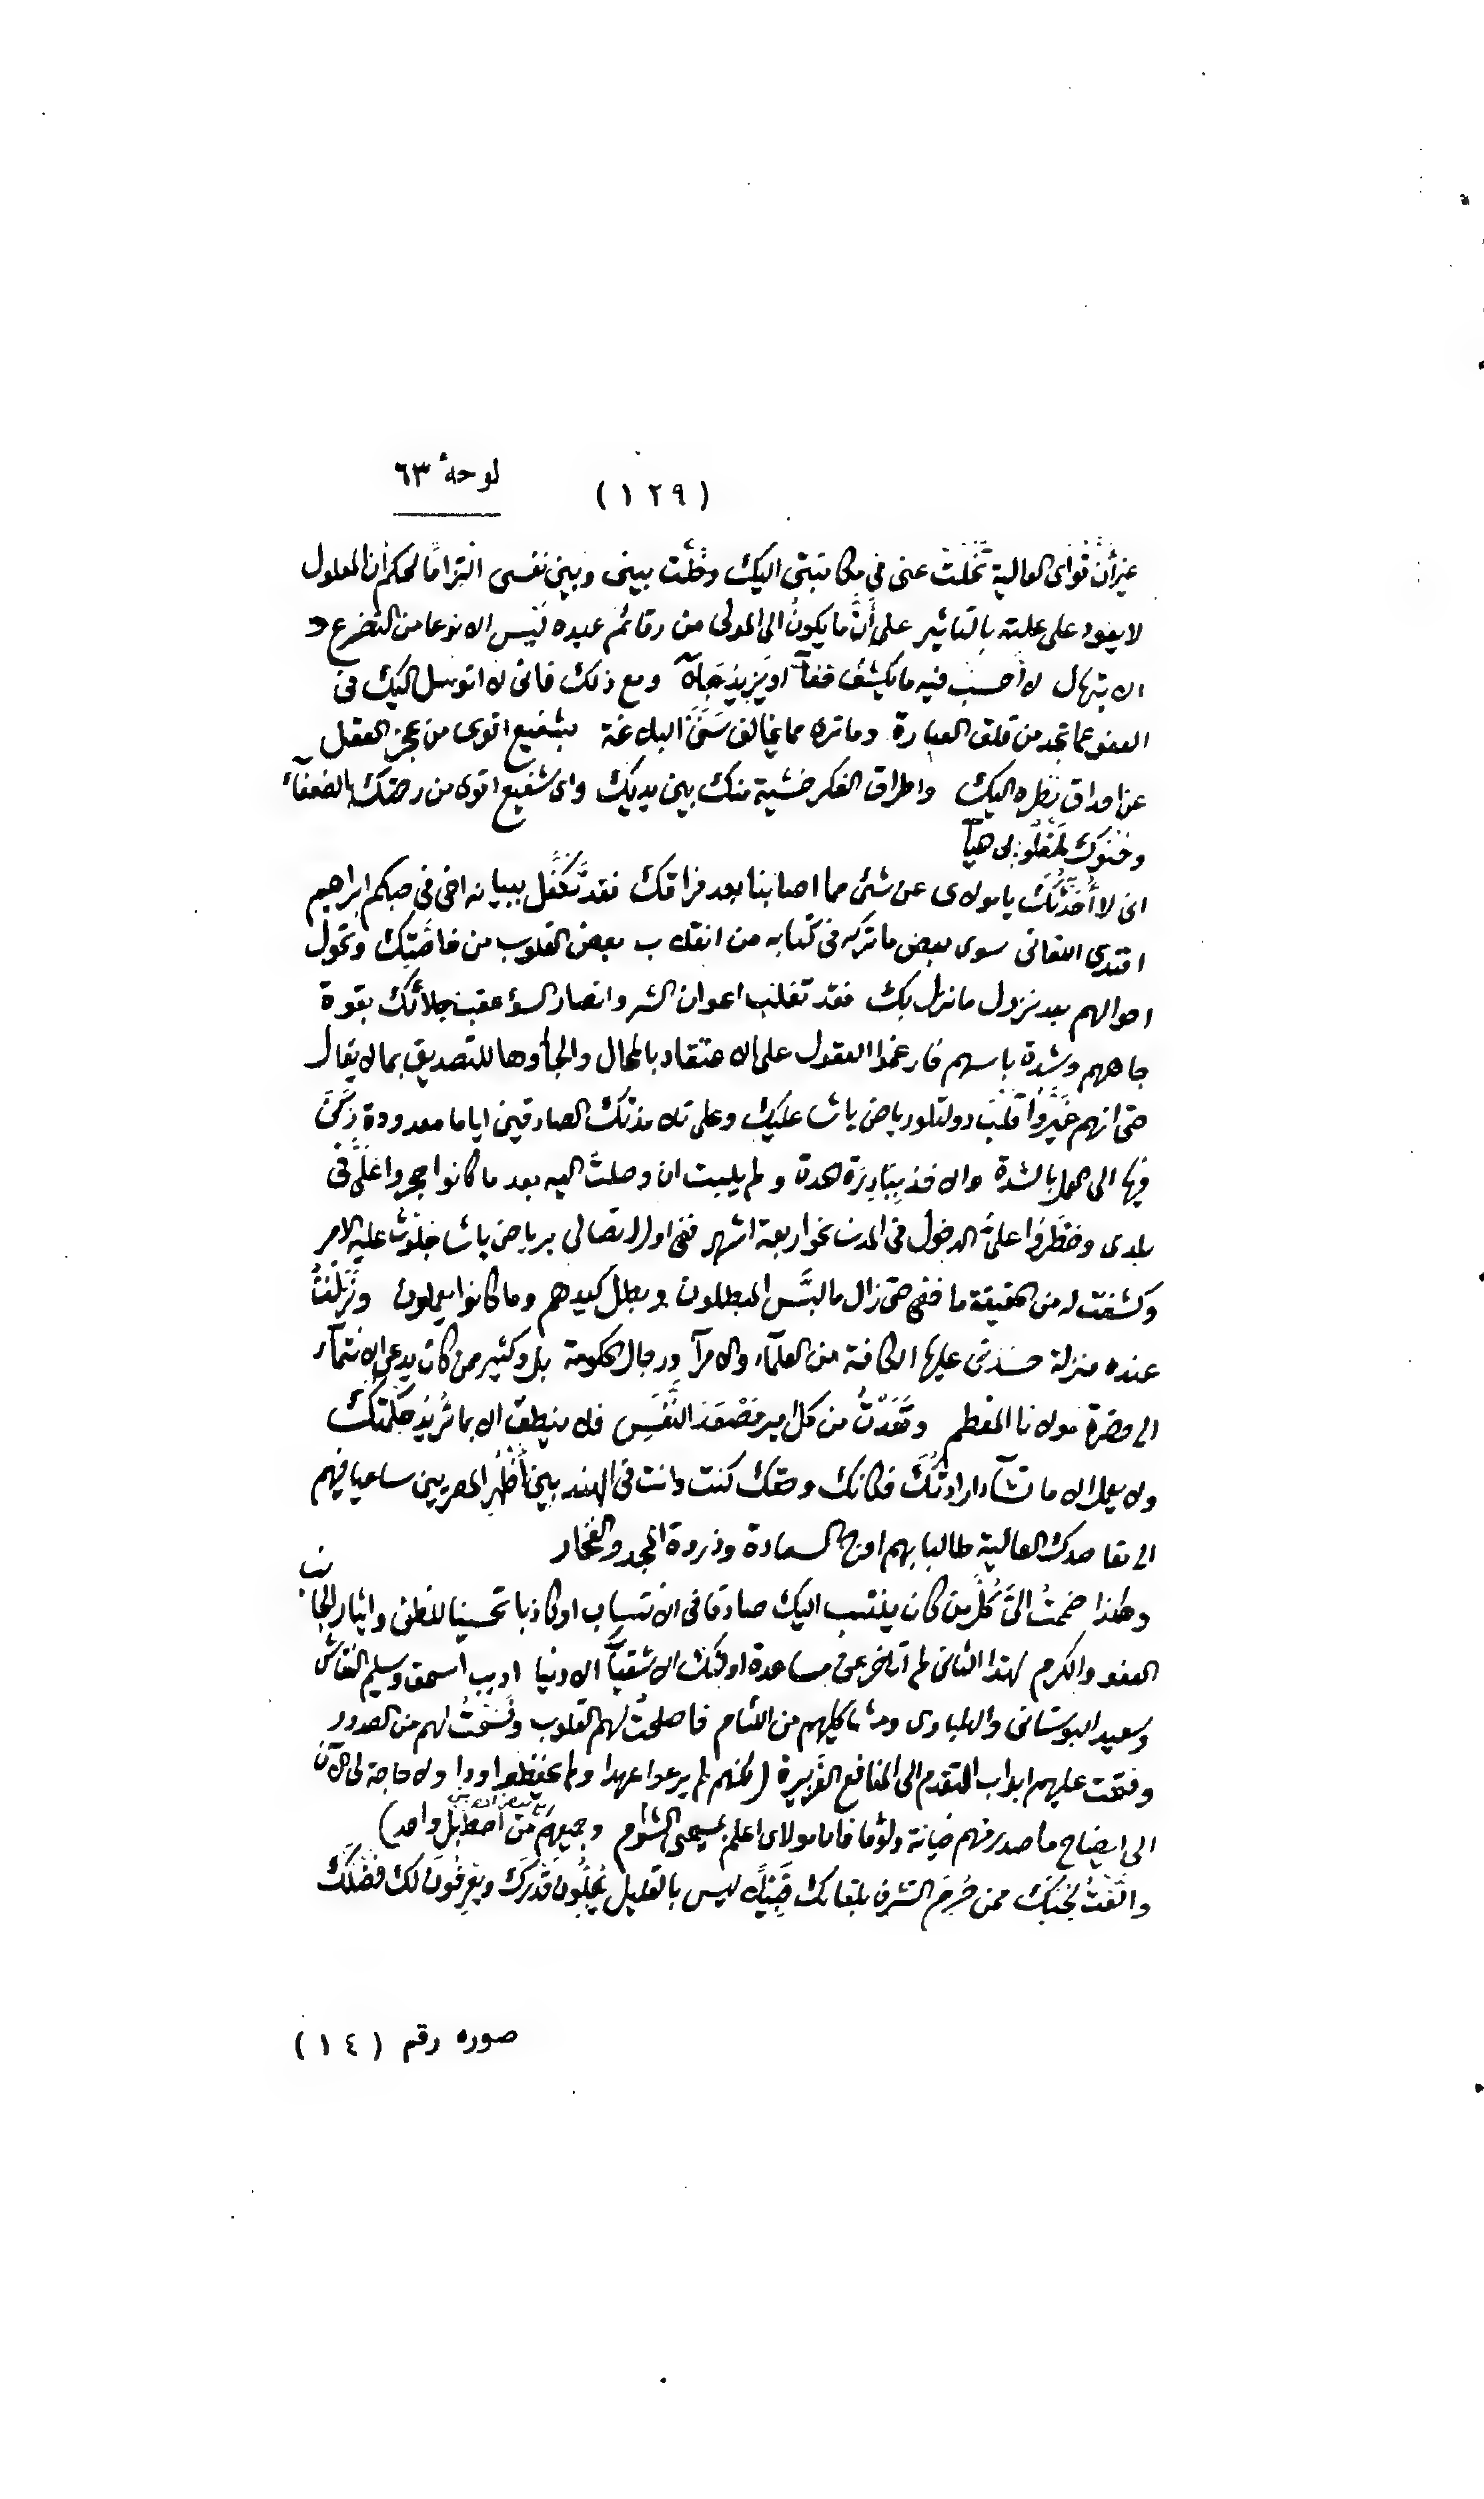 لوحة ٦٣
(١٢٩)
غير أن قواى العالية تخلت عنى في مكاتبتى اليك وخلّت بينى وبين نفسى التزامًا لحكم أن المعلول
لا يعود على علته بالتاثير على أنّ ما يكون الى المولى من رقائم عبيده ليس الا نوعا من التضرع و
الابتهال لا أحسب فيه ما يكشف خفآء او يزيد جلآء ومع ذلك فانى لا اتوسل اليك فى
العفو عما تجد من قلق العبارة وما تره مما يخالف سَنَن البلاغة بشفيع اقوى من عجز العقل
عن احداق نظره اليك واطراق الفكر خشية منك بين يديك واى شفيع اقوى من رحمتك بالضعفآء
وحنوك لمغلوبى حيآء
انى لا أحدّثك يا مولاى عن شئ مما اصابنا بعد فراقك فقد تكفّل ببيانه اخى فى حبكم ابراهيم
افندى اللقانى سوى بعض ما تركه فى كتابه من انقلاب بعض القلوب من خاصّتك وتحول
احوالهم بعد نزول ما نزل بك فقد تغلب اعوان الشر وانصار السؤ عقب جلائك بقوة
جاههم وشدة باسهم فارغموا العقول على الاعتقاد بالمحال والجأوها للتصديق بما لا يقال
حتى انهم غيّروا قلب دولتلو رياض باشا عليك وعلى تلامذتك الصادقين اياما معدودة ركن
فيها الى العمل بالشدة والاخذ ببادرة الحدة ولم يلبث ان وصلت اليه بعد ما كانوا حجروا علىّ فى
بلدى وحظروا علىّ الدخول فى المدن نحو اربعة اشهر ففى اول اتصالى برياض باشا جلوت عليه الامر
وكشفت له من الحقيقة ما خفى حتى زال ما لبّس المبطلون وبطل كيدهم وما كانوا يعملون ونزلت
عنده منزلة حسدنى عليها الكافة من العلمآء والامرآء ورجال الحكومة بل وكثير ممن كان يدعى الانتمآء
الى حضرة مولانا المعظم وقعدت من كل امير مصعد النَّفَس فلا ينطق الا بما تريد حكمتك
ولا يعمل الا ما تشآء ارادتك فكانك وحقك كنت وانت فى الهند بين أظهر المصريين ساعيا فيهم
الى مقاصدك العالية طالبا بهم اوج السعادة وذروة المجد والفخار
وهكذا ضممت الىّ كلّ من كان ينتسب اليك صادقا فى الانتساب او كاذبا تحسينا للظن وايثار لجانب
العفو والكرم لهذا الثانى لم أتاخر عن مساعدة اولئك الاشقيآء الادنيا اديب اسحق وسليم النقاش
وسعيد البوستانى والهلباوى ومشاكليهم من اللئام فاصلحتُ لهم القلوب وفسحتُ لهم من الصدور
وفتحت عليهم ابواب التقدم الى المنافع الغزيرة (لكنهم لم يرعوا عهدا ولم يحفظوا ودا ولا حاجة لى الآن
الى ايضاح ما صدر منهم خيانة ولؤما فانا يا مولاى اعلم بمسيحى الشوام وجميعهم من اصطبل واحد)
والّفتُ لحبك ممن حُرم الشرف بلقائك قبيلاً ليس بالقليل يُجلّون قدرك ويعرفون لك فضلك
صوره رقم (١٤)